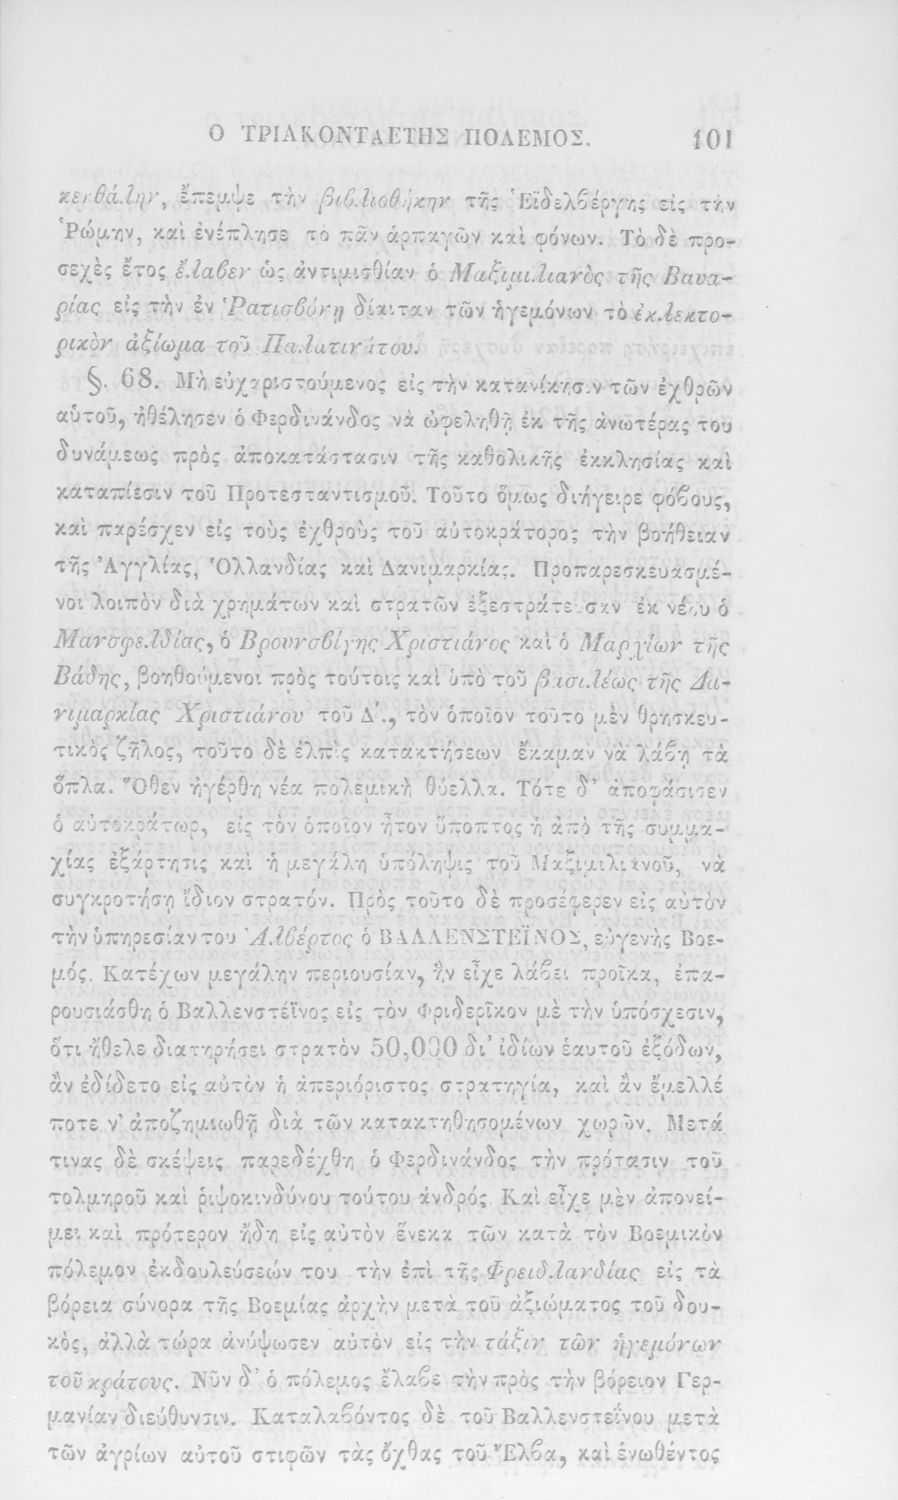 Ο ΤΡΙΑΚΟΝΤΑΕΤΗΣ ΠΟΛΕΜΟΣ. 101
κενθάλην, ἔπεμψε τὴν βιβλιοθήκην τῆς Ἑϊδελβέργης εἰς τὴν
Ῥώμην, καὶ ἐνέπλησε τὸ πᾶν ἁρπαγῶν καὶ φόνων. Τὸ δὲ προ-
σεχὲς ἔτος ἔλαβεν ὡς ἀντιμισθίαν ὁ Μαξιμιλιανὸς τῆς Βαυα-
ρίας εἰς τὴν ἐν Ῥατισβόνῃ δίαιταν τῶν ἡγεμόνων τὸ ἐκλεκτο-
ρικὸν ἀξίωμα τοῦ Παλατινάτου.
§. 68. Μὴ εὐχαριστούμενος εἰς τὴν κατανίκησιν τῶν ἐχθρῶν
αὑτοῦ, ἠθέλησεν ὁ Φερδινάνδος νὰ ὠφεληθῇ ἐκ τῆς ἀνωτέρας του
δυνάμεως πρὸς ἀποκατάστασιν τῆς καθολικῆς ἐκκλησίας καὶ
καταπίεσιν τοῦ Προτεσταντισμοῦ. Τοῦτο ὅμως διήγειρε φόβους,
καὶ παρέσχεν εἰς τοὺς ἐχθροὺς τοῦ αὐτοκράτορος τὴν βοήθειαν
τῆς Ἀγγλίας, Ὁλλανδίας καὶ Δανιμαρκίας. Προπαρεσκευασμέ-
νοι λοιπὸν διὰ χρημάτων καὶ στρατῶν ἐξεστράτευσαν ἐκ νέου ὁ
Μανσφελδίας, ὁ Βρουνσβίγης Χριστιάνος καὶ ὁ Μαρχίων τῆς
Βάδης, βοηθούμενοι πρὸς τούτοις καὶ ὑπὸ τοῦ βασιλέως τῆς Δα-
νιμαρκίας Χριστιάνου τοῦ Δ΄., τὸν ὁποῖον τοῦτο μὲν θρησκευ-
τικὸς ζῆλος, τοῦτο δὲ ἐλπὶς κατακτήσεων ἔκαμαν νὰ λάβῃ τὰ
ὅπλα. Ὅθεν ἠγέρθη νέα πολεμικὴ θύελλα. Τότε δ' ἀποφάσισεν
ὁ αὐτοκράτωρ, εἰς τὸν ὁποῖον ἦτον ὕποπτος ἡ ἀπὸ τῆς συμμα-
χίας ἐξάρτησις καὶ ἡ μεγάλη ὑπόληψις τοῦ Μαξιμιλιανοῦ, νὰ
συγκροτήσῃ ἴδιον στρατόν. Πρὸς τοῦτο δὲ προσέφερεν εἰς αὐτὸν
τὴν ὑπηρεσίαν του Ἀλβέρτος ὁ ΒΑΛΛΕΝΣΤΕΪΝΟΣ, εὐγενὴς Βοε-
μός. Κατέχων μεγάλην περιουσίαν, ἣν εἶχε λάβει προῖκα, ἐπα-
ρουσιάσθη ὁ Βαλλενστέϊνος εἰς τὸν Φριδερῖκον μὲ τὴν ὑπόσχεσιν,
ὅτι ἤθελε διατηρήσει στρατὸν 50,000 δι' ἰδίων ἑαυτοῦ ἐξόδων,
ἂν ἐδίδετο εἰς αὐτὸν ἡ ἀπεριόριστος στρατηγία, καὶ ἂν ἔμελλέ
ποτε ν' ἀποζημιωθῇ διὰ τῶν κατακτηθησομένων χωρῶν. Μετά
τινας δὲ σκέψεις παρεδέχθη ὁ Φερδινάνδος τὴν πρότασιν τοῦ
τολμηροῦ καὶ ῥιψοκινδύνου τούτου ἀνδρός. Καὶ εἶχε μὲν ἀπονεί-
μει καὶ πρότερον ἤδη εἰς αὐτὸν ἕνεκα τῶν κατὰ τὸν Βοεμικὸν
πόλεμον ἐκδουλεύσεών του τὴν ἐπὶ τῆς Φρειδλανδίας εἰς τὰ
βόρεια σύνορα τῆς Βοεμίας ἀρχὴν μετὰ τοῦ ἀξιώματος τοῦ δου-
κὸς, ἀλλὰ τώρα ἀνύψωσεν αὐτὸν εἰς τὴν τάξιν τῶν ἡγεμόνων
τοῦ κράτους. Νῦν δ' ὁ πόλεμος ἔλαβε τὴν πρὸς τὴν βόρειον Γερ-
μανίαν διεύθυνσιν. Καταλαβόντος δὲ τοῦ Βαλλενστεΐνου μετὰ
τῶν ἀγρίων αὐτοῦ στιφῶν τὰς ὄχθας τοῦ Ἔλβα, καὶ ἑνωθέντος